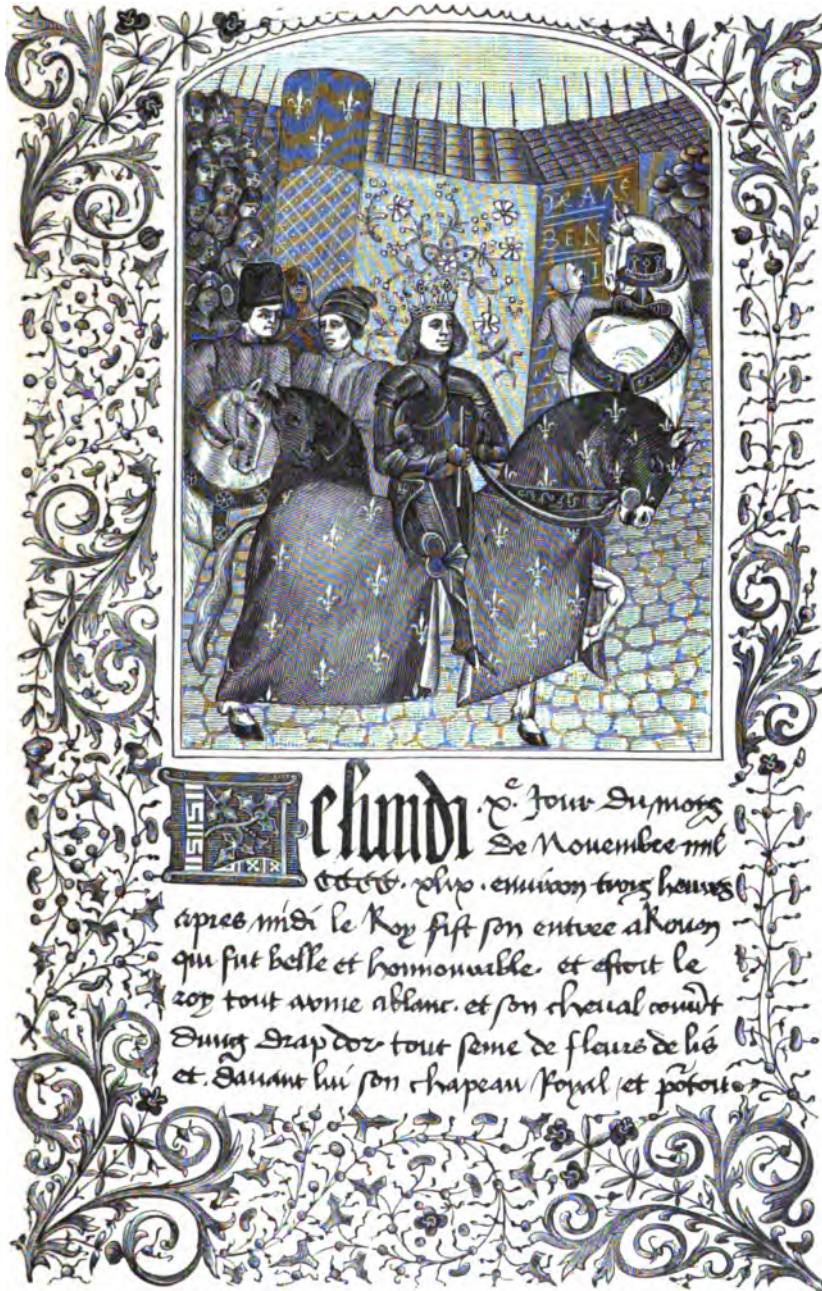 DEANE
BEN
I
Le lundi .xe. Jour du moys
de Nouembre mil
CCCC. xlix. enuiron troys heures
apres midi le Roy fist son entree a Rouen
qui fut belle et honnourable. et estoit le
roy tout arme a blanc. et son cheual couuert
dung drap dor tout seme de fleurs de lis
et. dauant lui son chapeau Royal / et portoit